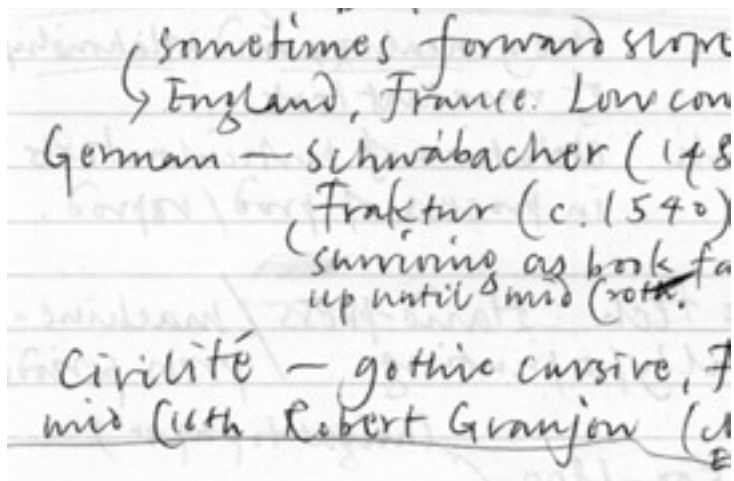 sometimes forward slope
England, France. Low con
German — Schwabacher (148
Fraktur (c.1540)
surviving as book fa
up until mid C20th.
Civilité — gothic cursive, F
mid C16th Robert Granjon (